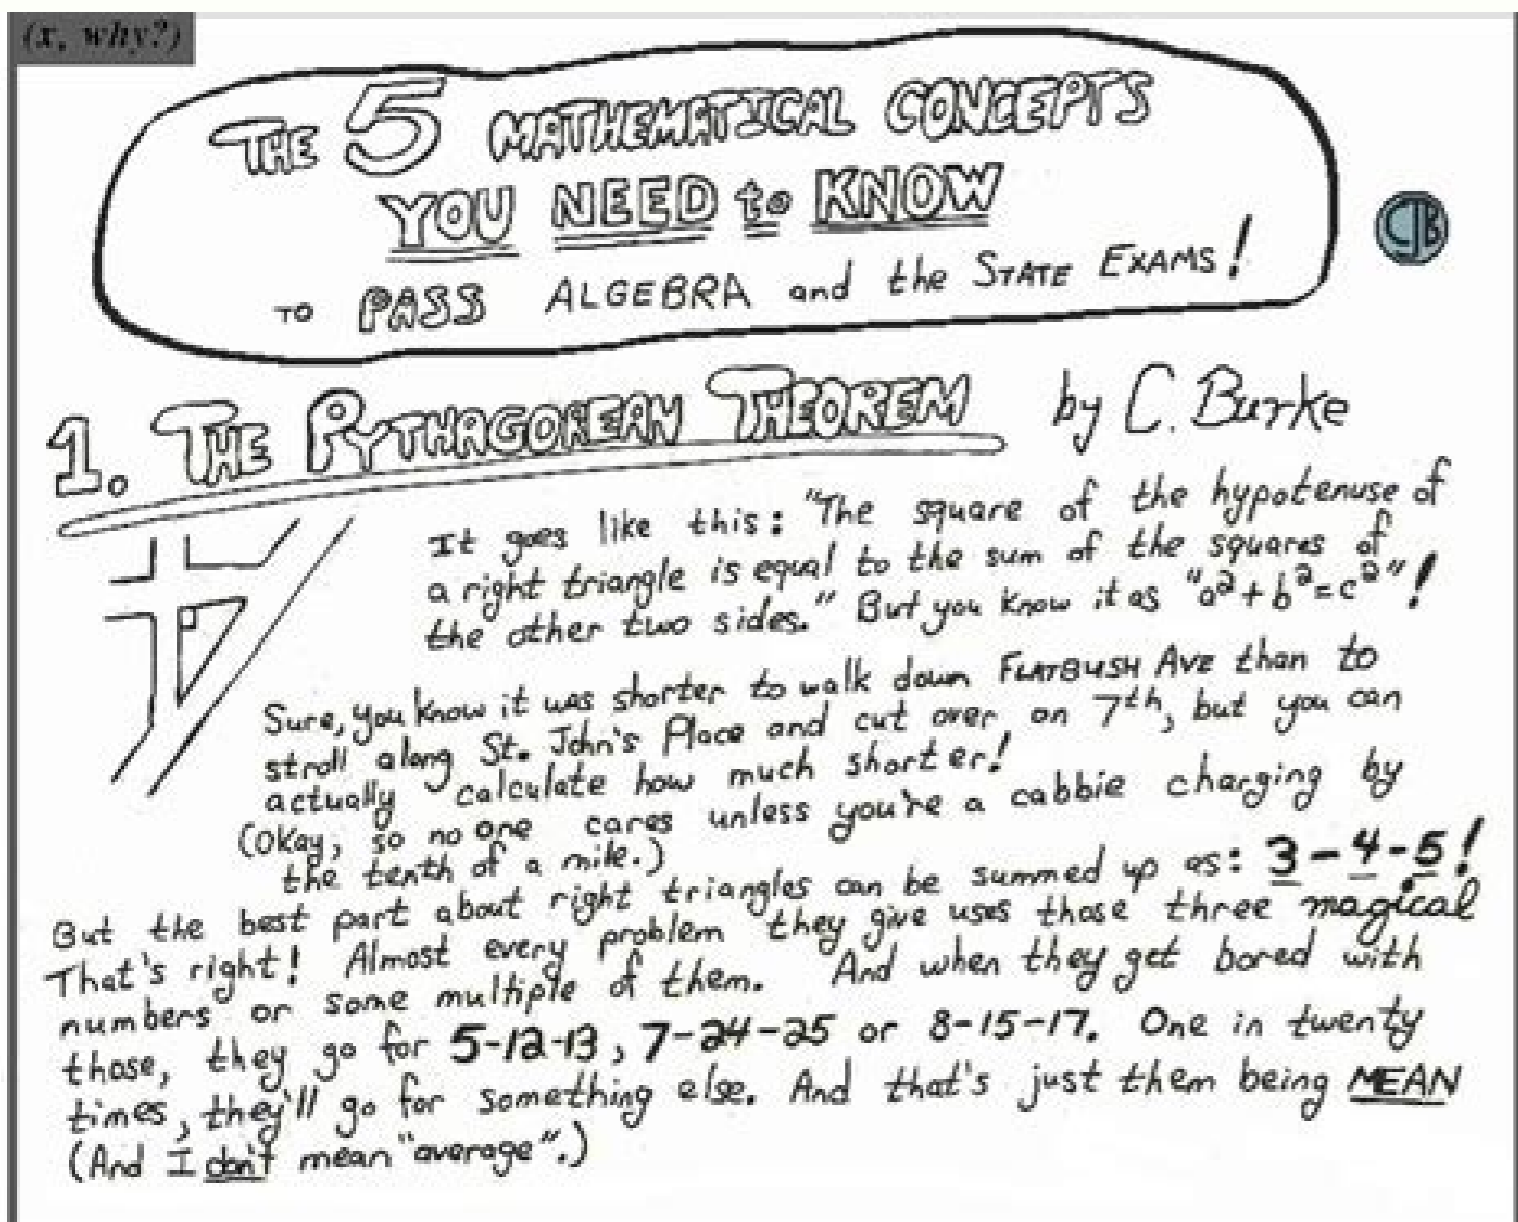 (x, why?)
THE 5 MATHEMATICAL CONCEPTS
YOU NEED to KNOW
TO PASS ALGEBRA and the STATE EXAMS!
CJB
1. THE PYTHAGOREAN THEOREM by C. Burke
It goes like this: "The square of the hypotenuse of
a right triangle is equal to the sum of the squares of
the other two sides." But you know it as "a²+b²=c²"!
Sure, you know it was shorter to walk down FLATBUSH AVE than to
stroll along St. John's Place and cut over on 7th, but you can
actually calculate how much shorter!
(Okay, so no one cares unless you're a cabbie charging by
the tenth of a mile.)
But the best part about right triangles can be summed up as: 3-4-5!
That's right! Almost every problem they give uses those three magical
numbers or some multiple of them. And when they get bored with
those, they go for 5-12-13, 7-24-25 or 8-15-17. One in twenty
times, they'll go for something else. And that's just them being MEAN
(And I don't mean "average".)